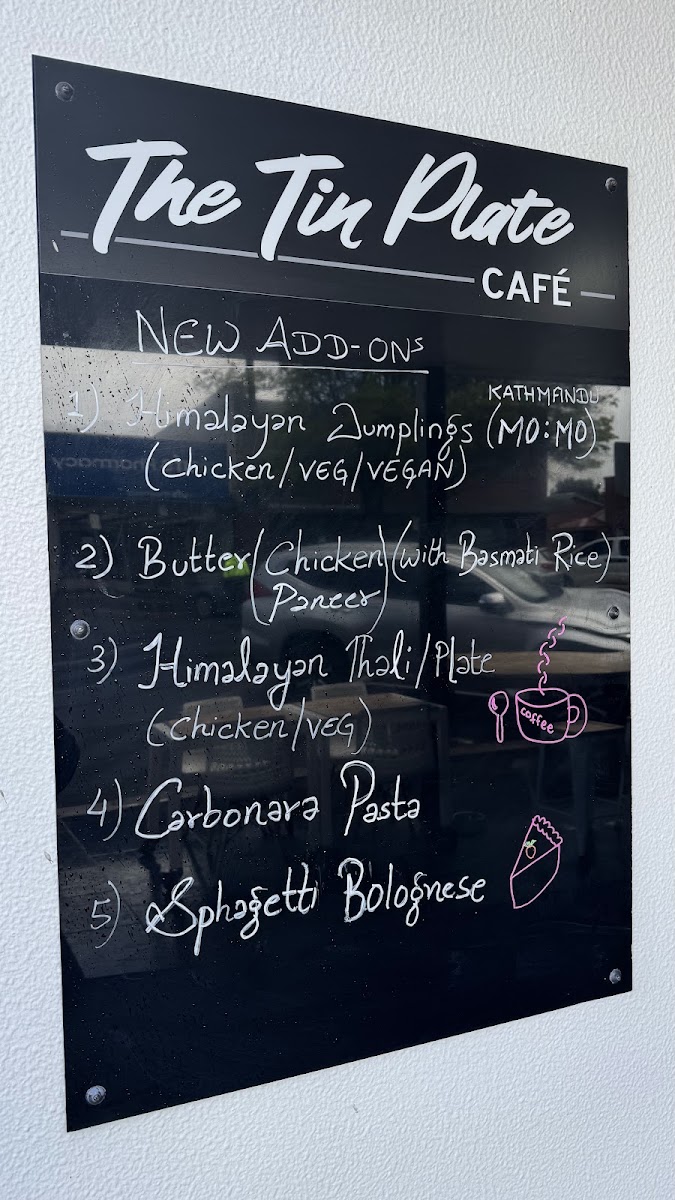 The Tin Plate
CAFÉ
NEW ADD-ONs
KATHMANDU
1) Himalayan Dumplings (MO:MO)
(Chicken/VEG/VEGAN)
2) Butter (Chicken) (with Basmati Rice)
(Paneer)
3) Himalayan Thali/Plate
(Chicken/VEG)
coffee
4) Carbonara Pasta
5) Sphagetti Bolognese